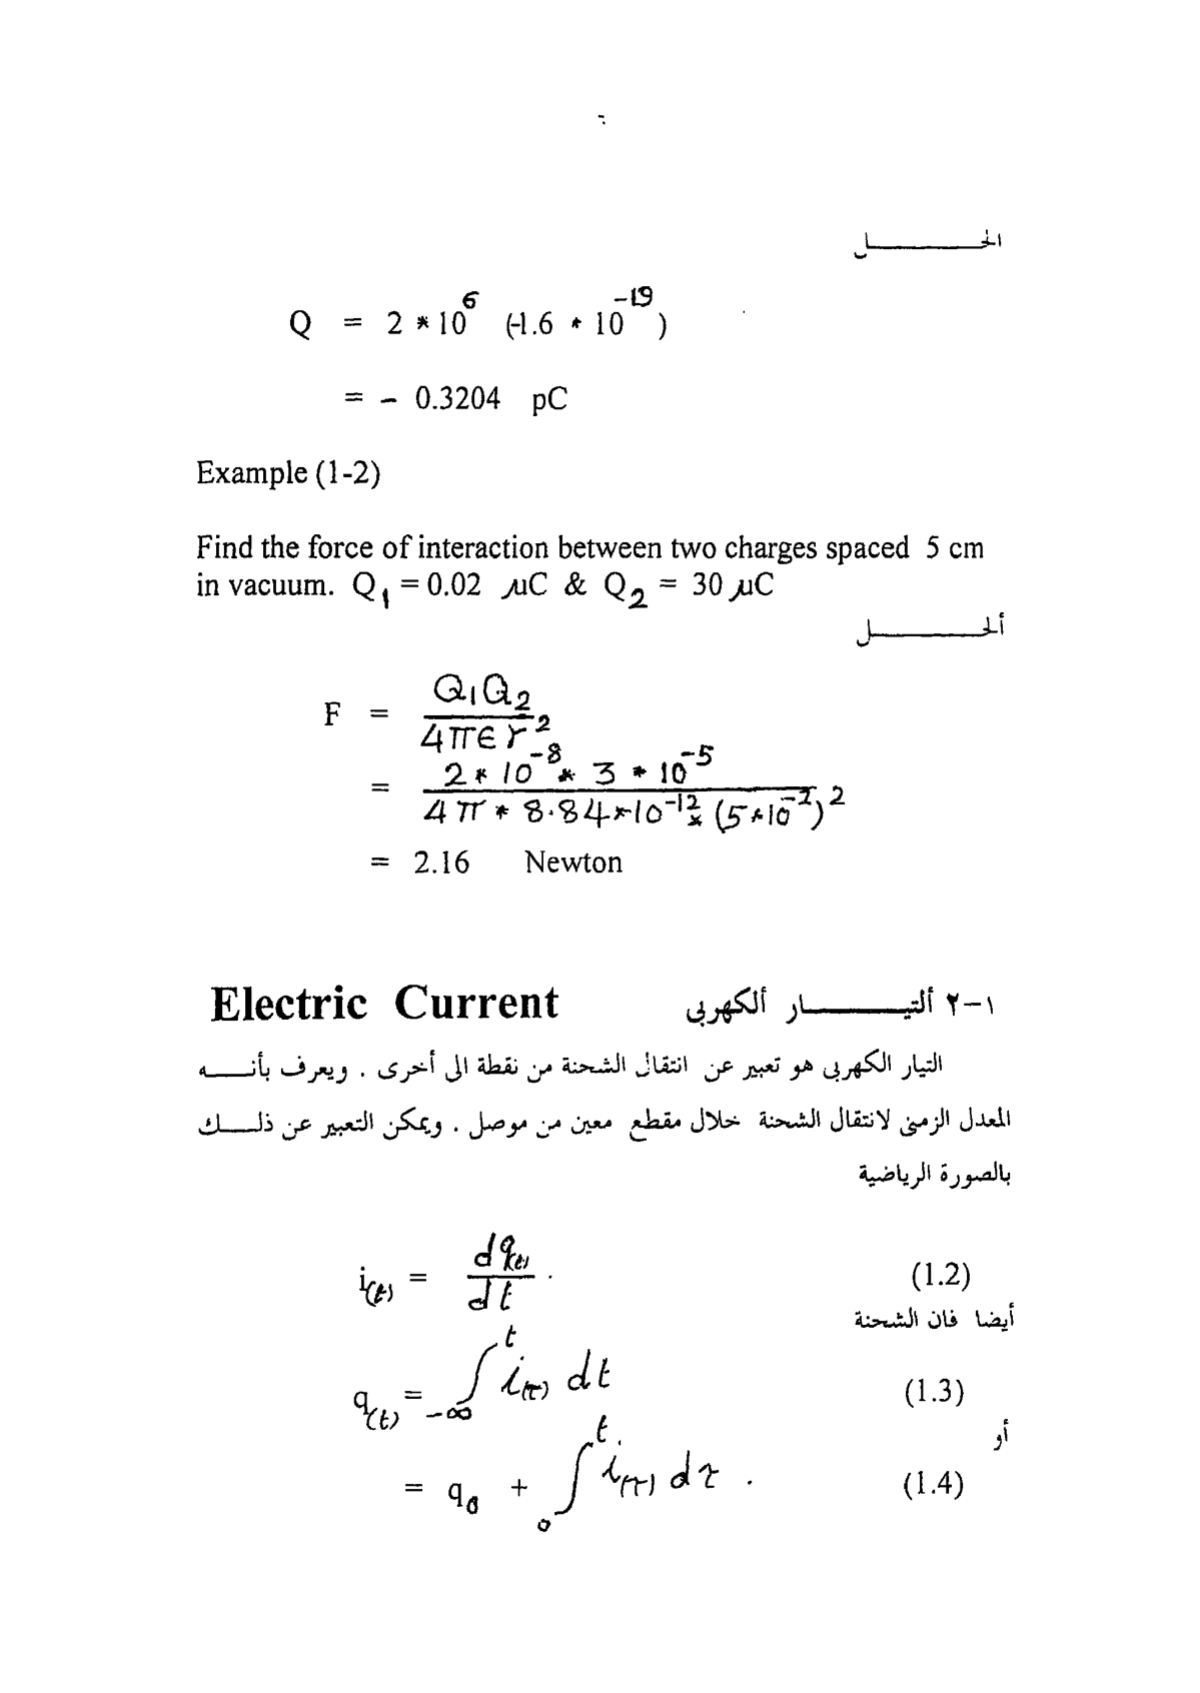 الحــــــل
Q = 2 * 10^6 (-1.6 * 10^-19)
= - 0.3204 pC
Example (1-2)
Find the force of interaction between two charges spaced 5 cm
in vacuum. Q1 = 0.02 μC & Q2 = 30 μC
ألحــــــل
F = Q1Q2 / 4πϵr^2
= 2 * 10^-8 * 3 * 10^-5 / 4π * 8.84*10^-12 * (5*10^-2)^2
= 2.16 Newton
١-٢ ألتيــــــار ألكهربى Electric Current
التيار الكهربى هو تعبير عن انتقال الشحنة من نقطة الى أخرى . ويعرف بأنـــه
المعدل الزمنى لانتقال الشحنة خلال مقطع معين من موصل . ويمكن التعبير عن ذلـــك
بالصورة الرياضية
i(t) = dq(t) / dt . (1.2)
أيضا فان الشحنة
q(t) = ∫_-∞^t i(τ) dt (1.3)
أو
= q0 + ∫_0^t i(τ) dτ . (1.4)